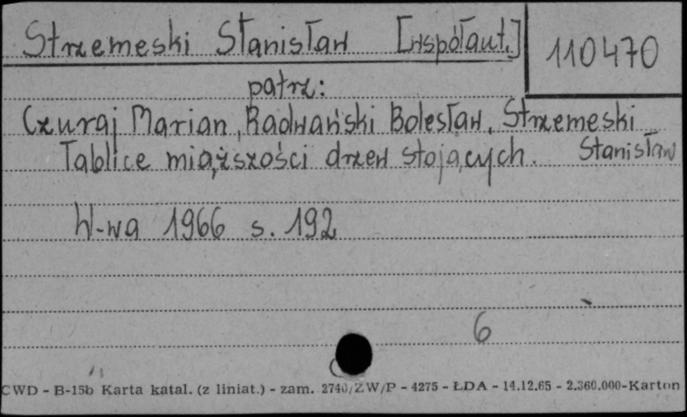 Strzemeski Stanisław [współaut.]
110470
patrz:
Czuraj Marian, Radwański Bolesław, Strzemeski
Stanisław
Tablice miąższości drzew stojących.
W-wa 1966 s. 192
6
CWD - B-15b Karta katal. (z liniat.) - zam. 2740/ZW/P - 4275 - ŁDA - 14.12.65 - 2.360.000-Karton